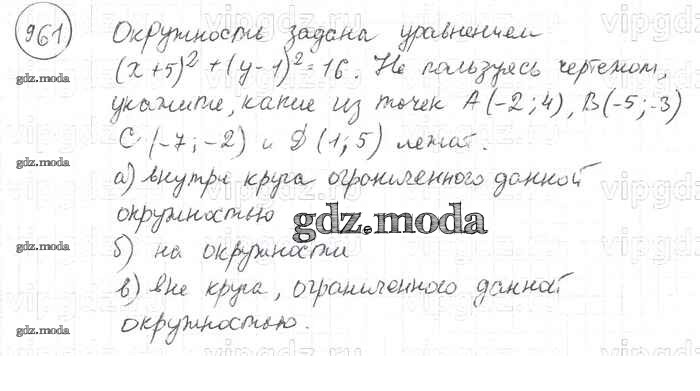 961 Окружность задана уравнением
(x+5)² + (y-1)² = 16. Не пользуясь чертежом,
укажите, какие из точек A(-2;4), B(-5;-3)
C(-7;-2) и D(1;5) лежат.
а) внутри круга ограниченного данной
окружностью
б) на окружности
в) вне круга, ограниченного данной
окружностью.
gdz.moda
gdz.moda
gdz.moda
gdz.moda
gdz.moda